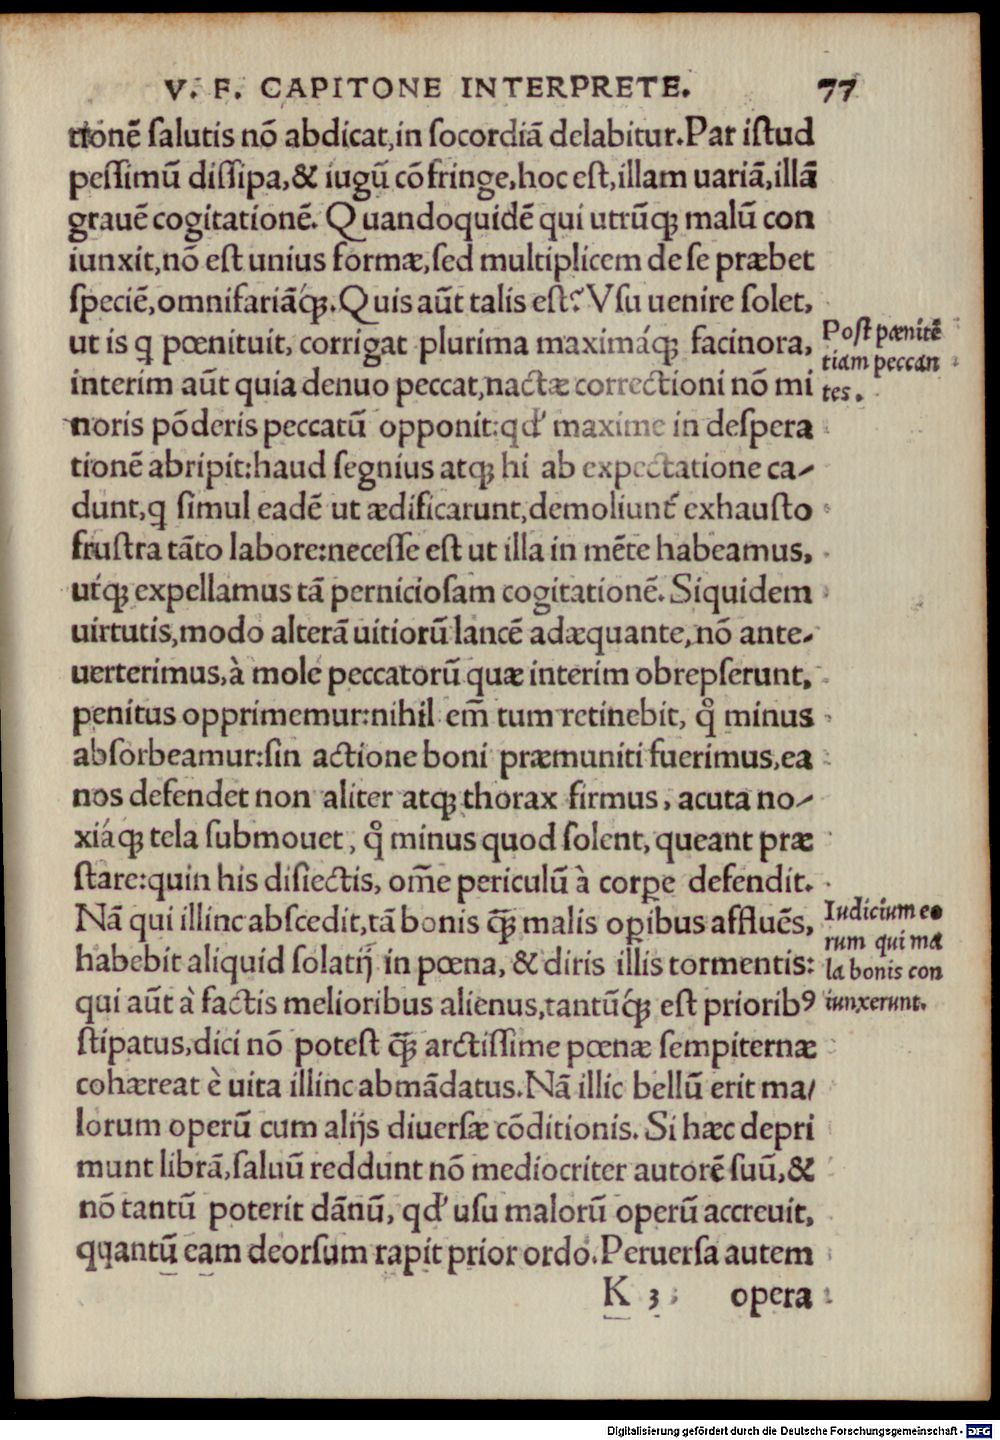 V. F. CAPITONE INTERPRETE. 77
tionē ſalutis nō abdicat,in ſocordiā delabitur.Par iſtud
peſſimū diſſipa,& iugū cōfringe,hoc eſt,illam uariā,illā
grauē cogitationē. Quandoquidē qui utrūqꝫ malū con
iunxit,nō eſt unius formæ,ſed multiplicem de ſe præbet
ſpeciē,omnifariāq́ꝫ.Quis aūt talis eſt? Vſu uenire ſolet,
ut is q pœnituit, corrigat plurima maximáqꝫ facinora,
interim aūt quia denuo peccat,nactæ correctioni nō mi
noris pōderis peccatū opponit:qd' maxime in deſpera
tionē abripit:haud ſegnius atqꝫ hi ab expectatione ca-
dunt,q ſimul eadē ut ædificarunt,demoliunt᷑ exhauſto
fruſtra tāto labore:neceſſe eſt ut illa in mēte habeamus,
utq́ꝫ expellamus tā pernicioſam cogitationē. Siquidem
uirtutis,modo alterā uitiorū lancē adæquante,nō ante-
uerterimus,à mole peccatorū quæ interim obrepſerunt,
penitus opprimemur:nihil em̄ tum retinebit, qͦ minus
abſorbeamur:ſin actione boni præmuniti fuerimus,ea
nos defendet non aliter atqꝫ thorax firmus, acuta no-
xiáqꝫ tela ſubmouet, qͦ minus quod ſolent, queant præ
ſtare:quin his diſiectis, om̄e periculū à corꝑe defendit.
Nā qui illinc abſcedit,tā bonis q̄ꝫ malis oꝑibus affluēs,
habebit aliquid ſolatij in pœna, & diris illis tormentis:
qui aūt à factis melioribus alienus,tantūq́ꝫ eſt prioribꝰ
ſtipatus,dici nō poteſt q̄ꝫ arctiſſime pœnæ ſempiternæ
cohæreat è uita illinc abmādatus. Nā illic bellū erit ma/
lorum operū cum alijs diuerſæ cōditionis. Si hæc depri
munt librā,ſaluū reddunt nō mediocriter autorē ſuū,&
nō tantū poterit dānū, qd' uſu malorū operū accreuit,
qquantū eam deorſum rapit prior ordo. Peruerſa autem
K 3 opera
Poſt pænitē
tiam peccan
tes.
Iudicium eo
rum qui ma
la bonis con
iunxerunt.
Digitalisierung gefördert durch die Deutsche Forschungsgemeinschaft - DFG